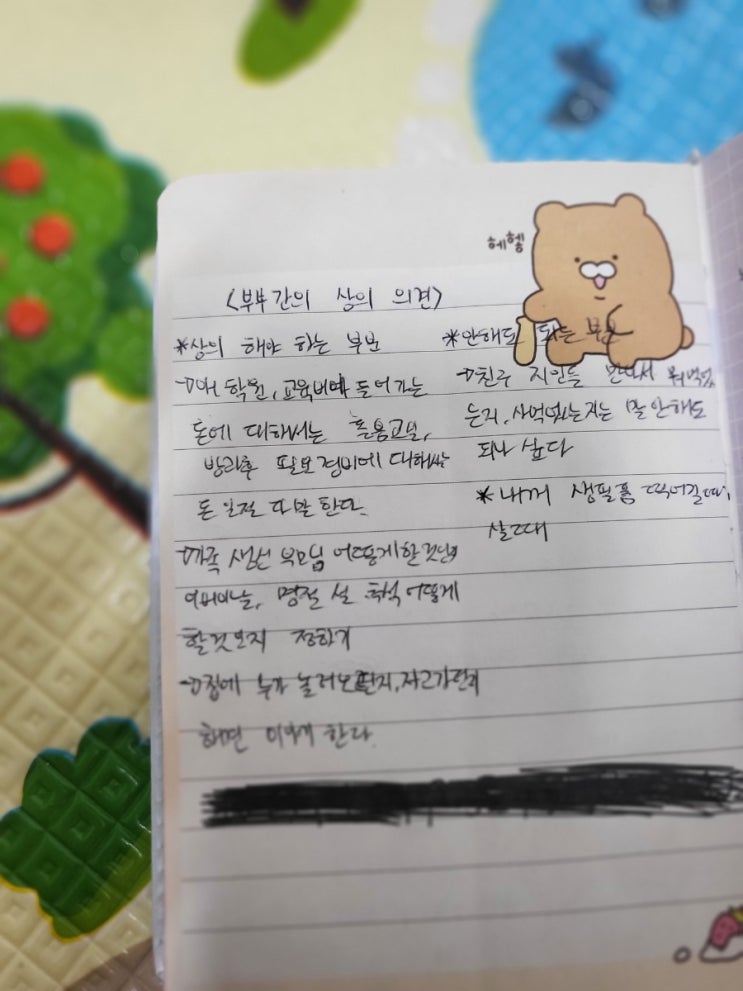 헤헿
<부부간의 상의 의견>
*상의 해야 하는 부분
→애 학원, 교육비에 들어가는
돈에 대해서는
방과후 필요경비에 대해서는
돈 일절 다 말 한다.
→가족 생신 부모님 어떻게 할것인지
어버이날, 명절 설 추석 어떻게
할것인지 정하기
→집에 누가 놀러오던지, 자고가던지
하면 이야기 한다.
*안해도 되는 부분
→친구 지인들 만나서 뭐먹었
는지, 사먹었는지는 말 안해도
되나 싶다
*내꺼 생필품 떨어질때,
살때